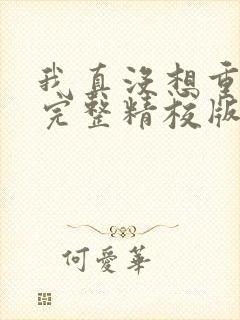 我真没想重
完整精校版
何爱华